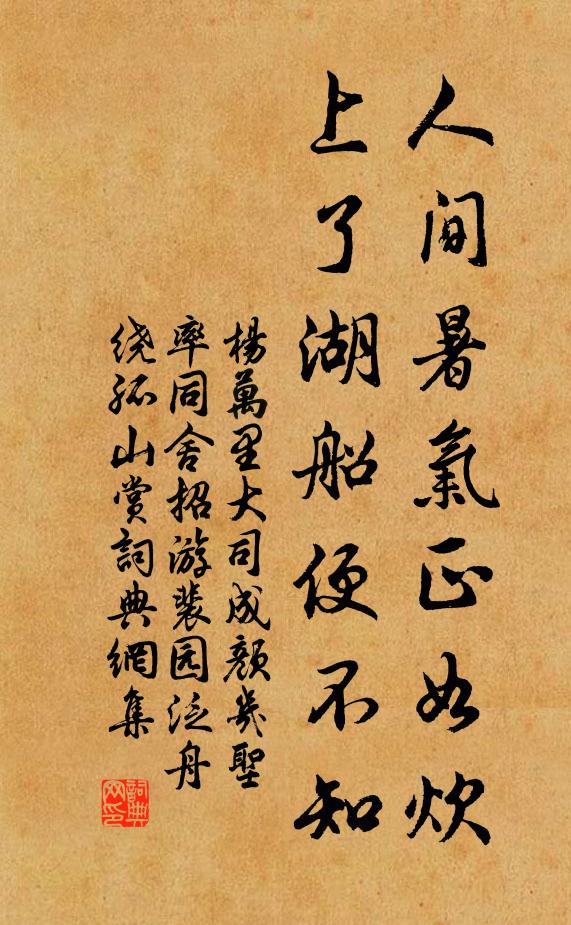 人間暑氣正如炊
上了湖船便不知
楊萬里大司成顏㡬聖
率同舍招游裴园泛舟
绕孤山赏詞典網集
詞典
网印